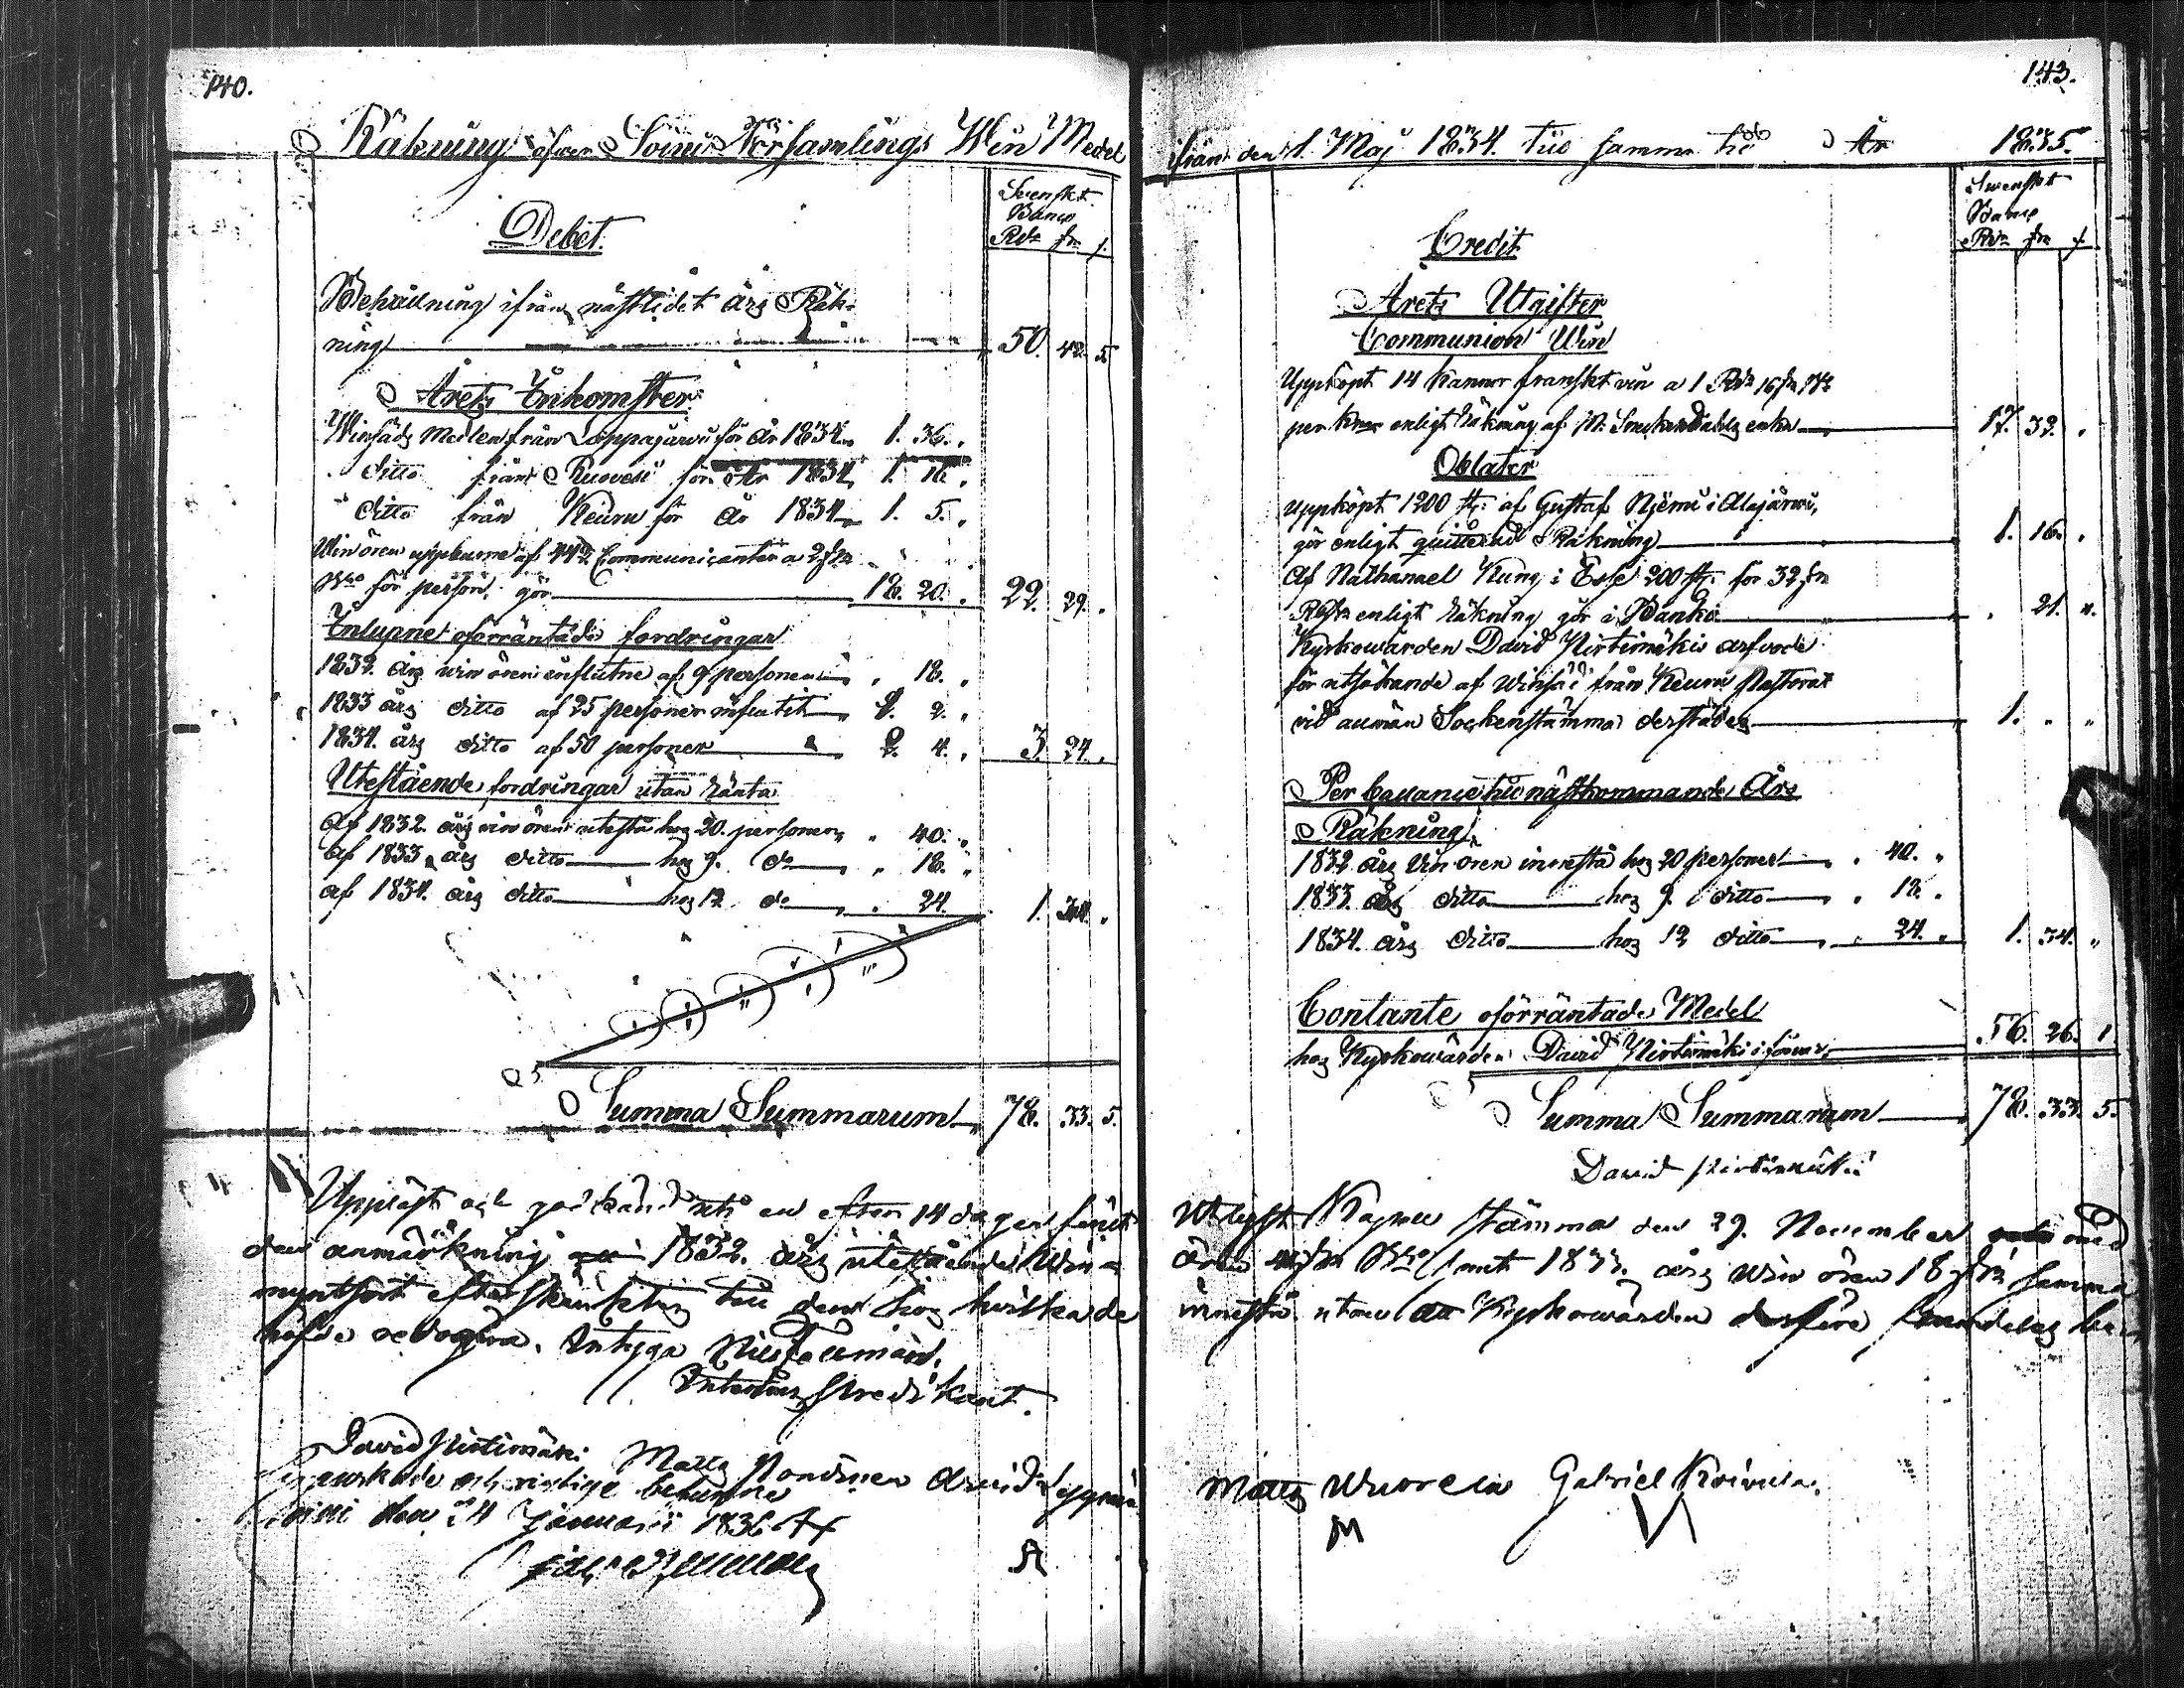 140.
Räkning öfwer Soini Församlings Win Medel
Svenskt
Banco
Rdr sk r.
Debet.
Behållning ifrån nästlidet års Räk-
ning 50. 42. 5
Årets Inkomster
Winsäds Medlen från Lappajärvi för år 1834 1. 36. "
ditto från Ruovesi för år 1834 1. 16. "
ditto från Keuru för år 1834 1. 5. "
Win ören uppburne af 442 Communicanter a 2 sk
Bco för person, gör 18. 20. " 22. 29. "
Inlupne oförräntade fordringar
1832 års win ören influtne af 9 personer " 18. "
1833 års ditto af 25 personer influtit 1. 2. "
1834. års ditto af 50 personer 2. 4. " 3. 24. "
Utestående fordringar utan ränta
af 1832. års win ören utestå hos 20. personer " 40. "
af 1833 års ditto hos 9. do " 18. "
af 1834. års ditto hos 12 do " 24. 1. 34. "
Summa Summarum 78. 33. 5.
Uppläst och godkänd uti en efter 14 dagar förut
den anmärkning 1832. års utestående Win
myntsort efterskänktes den hos hvilka de
Intyga
Predikant.
David Pirtimäki Matts
och riktige
den 24 Januarii 1836
143.
ifrån den 1. Maj 1834. till samma tid År 1835.
Svenskt
Banco
Rdr sk r
Credit
Årets Utgifter
Communion Win
Uppköpt 14 Kannor franskt vin a 1 Rdr 16 sk
per Kanna enligt Räkning af enka 17. 32. "
Oblater
uppköpt 1200 st. af Gustaf Njemi i Alajärvi,
gör enligt quitterad Räkning 1. 16. "
af Nathanael Kung i Esse 200 st. för 32 sk
Rgs enligt räkning gör i Banko " 21. "
Kyrkowärden David Pirtimäkis arfvode
för utsökande af Winsäd från Keuru Pastorat
vid allmän Sockenstämma derstädes 1. " "
Per Ballance till nästkommande Års
Räkning
1832 års Vin ören innestå hos 20 personer " 40. "
1833. års ditto hos 9. ditto " 18. "
1834. års ditto hos 12 ditto " 24. " 1. 34. "
Contante oförräntade Medel
hos Kyrkowärden David Pirtimäki i förvar 56. 26. 1
Summa Summarum 78. 33. 5.
David Pirtimäki
Utlyst stämma den 29. November med
ören Bco samt 1833. års win ören 18 sk samma
innestå utan att Kyrkowärden
Matts Gabriel Koivula.
M